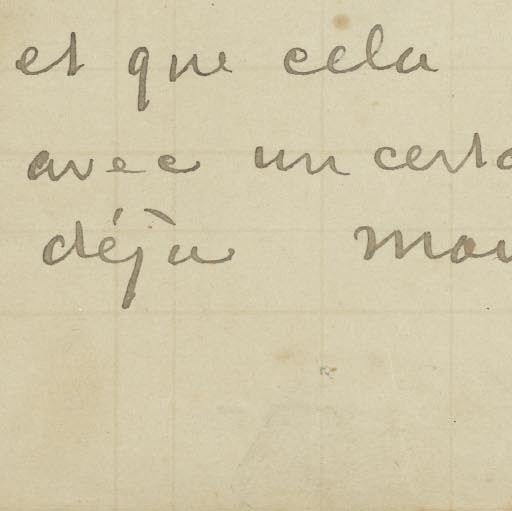 et que cela
avec un certa
déjà mou